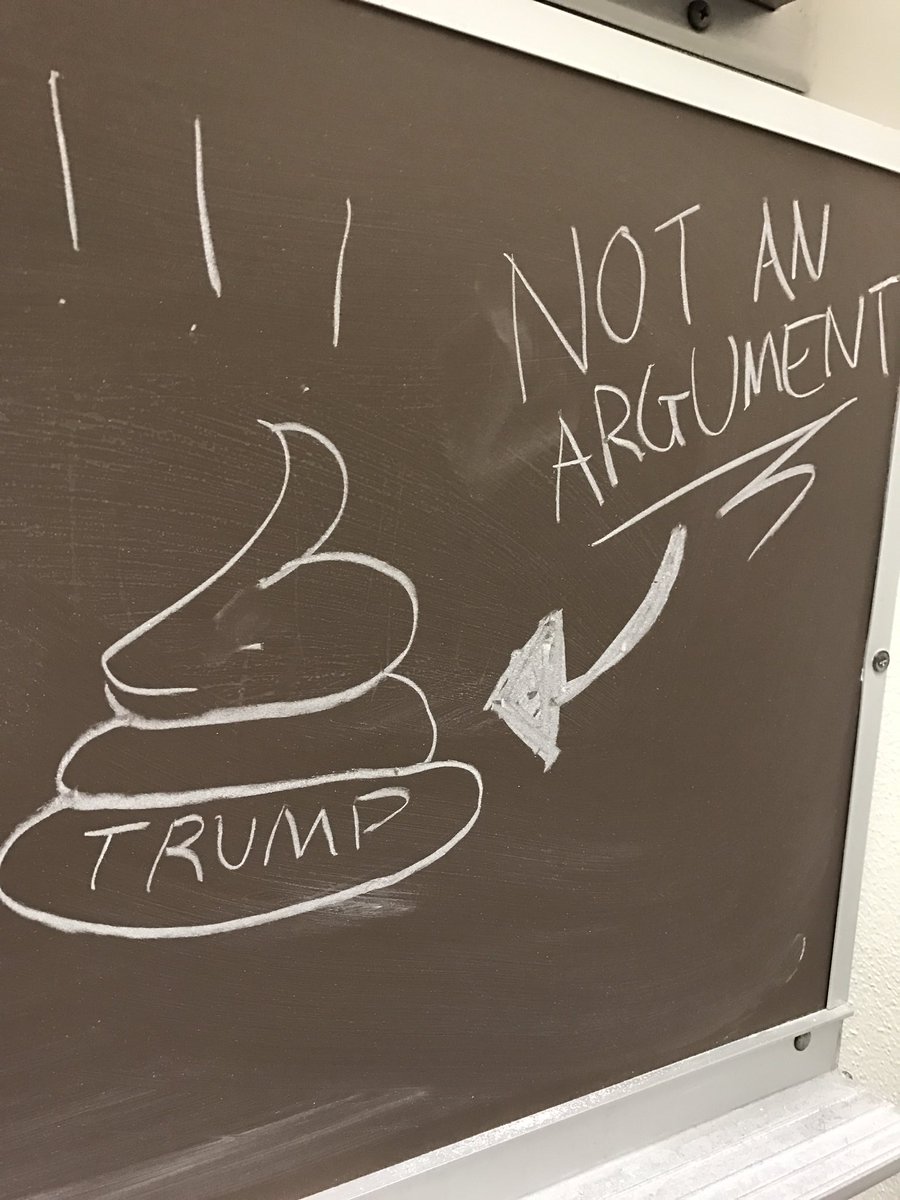 !!!
NOT AN
ARGUMENT
TRUMP